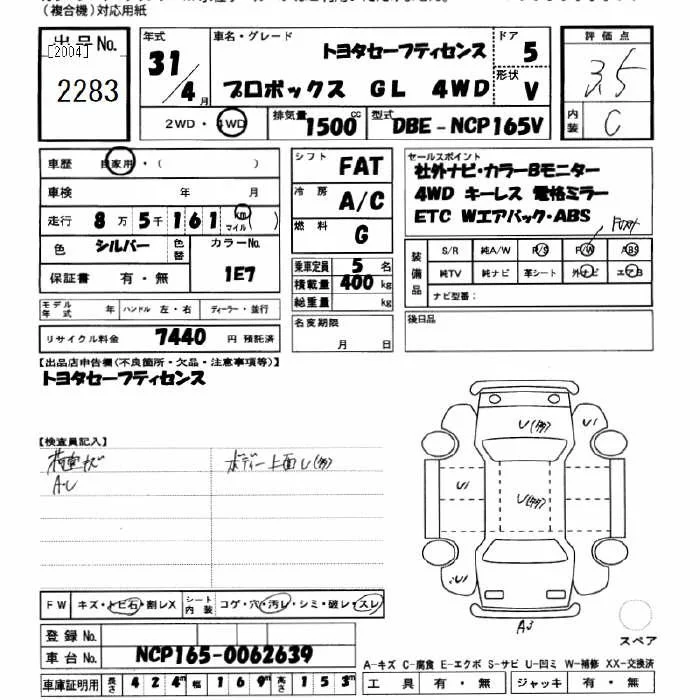 (複合機)対応用紙
出品No.
[2004]
2283
年式
31/4月
車名・グレード
トヨタセーフティセンス
プロボックス GL 4WD
ドア
5
形状
V
評価点
3.5
内装
C
2WD・4WD
排気量
1500cc
型式
DBE-NCP165V
車歴 自家用・( )
車検 年 月
走行 8万5千161 km マイル
色 シルバー 色替 カラーNo. 1E7
保証書 有・無
シフト FAT
冷房 A/C
燃料 G
乗車定員 5名
積載量 400 kg
総重量 kg
セールスポイント
社外ナビ・カラーBモニター
4WD キーレス 電格ミラー
ETC Wエアバック・ABS
装備品
S/R 純A/W P/S P/W ABS
純TV 純ナビ 革シート 外ナビ エアB
ナビ型番:
モデル年式 年 ハンドル 左・右 ディーラー・並行
名変期限
月 日
後日品
リサイクル料金 7440 円 預託済
【出品店申告欄(不良箇所・欠品・注意事項等)】
トヨタセーフティセンス
【検査員記入】
荷室キズ
A・U
ボディー上面U(多)
U(多)
U1
U1
U(多)
U1
A3
スペア
FW キズ・トビ石・割レX シート内装 コゲ・穴・汚レ・シミ・破レ・スレ
登録No.
車台No. NCP165-0062639
車庫証明用 長さ 424m 幅 169m 高さ 153m
A-キズ C-腐食 E-エクボ S-サビ U-凹ミ W-補修 XX-交換済
工具 有・無 ジャッキ 有・無